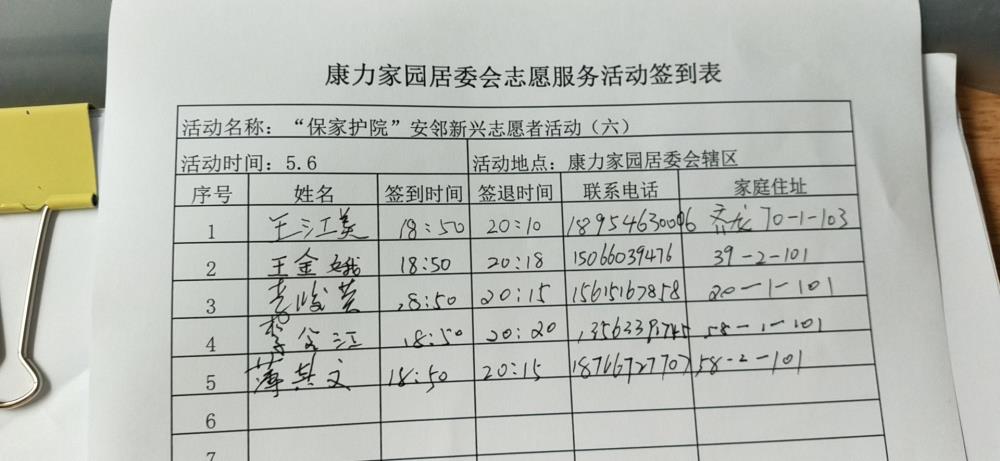 康力家园居委会志愿服务活动签到表
活动名称：“保家护院”安邻新兴志愿者活动（六）
活动时间：5.6 活动地点：康力家园居委会辖区
序号 姓名 签到时间 签退时间 联系电话 家庭住址
1 王江美 18:50 20:10 18954630006 70-1-103
2 王金娥 18:50 20:18 15066039476 39-2-101
3 18:50 20:15 15615167858 20-1-101
4 18:50 20:20 58-1-101
5 薄其文 18:50 20:15 18766727707 58-2-101
6
7